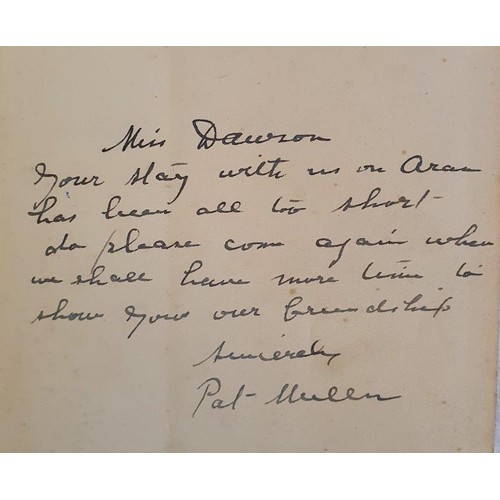 Miss Dawson
Your stay with us on Aran
has been all too short-
do please come again when
we shall have more time to
show you our friendship
Sincerely
Pat Mullen